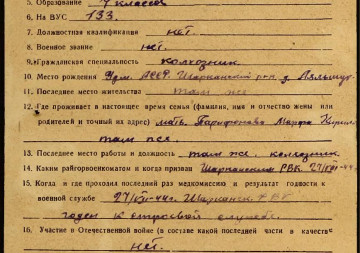 5. Образование 4 классов
6. На ВУС 133.
7. Должностная квалификация нет.
8. Военное звание нет.
9. Гражданская специальность колхозник.
10. Место рождения Удм. АССР. Шарканский р-н д. Ляльшур
11. Последнее место жительства там же
12. Где проживает в настоящее время семья (фамилия, имя и отчество жены или
родителей и точный их адрес) мать. Марфа
там же.
13. Последнее место работы и должность там же, колхозник
14. Каким райгорвоенкоматом и когда призван Шарканским РВК. 27/XII-44г.
15. Когда и где проходил последний раз медкомиссию и результат годности к
военной службе 27/XII-44г. Шарканск. РВК
годен к строевой службе.
16. Участие в Отечественной войне (в составе какой последней части и в качестве
нет.